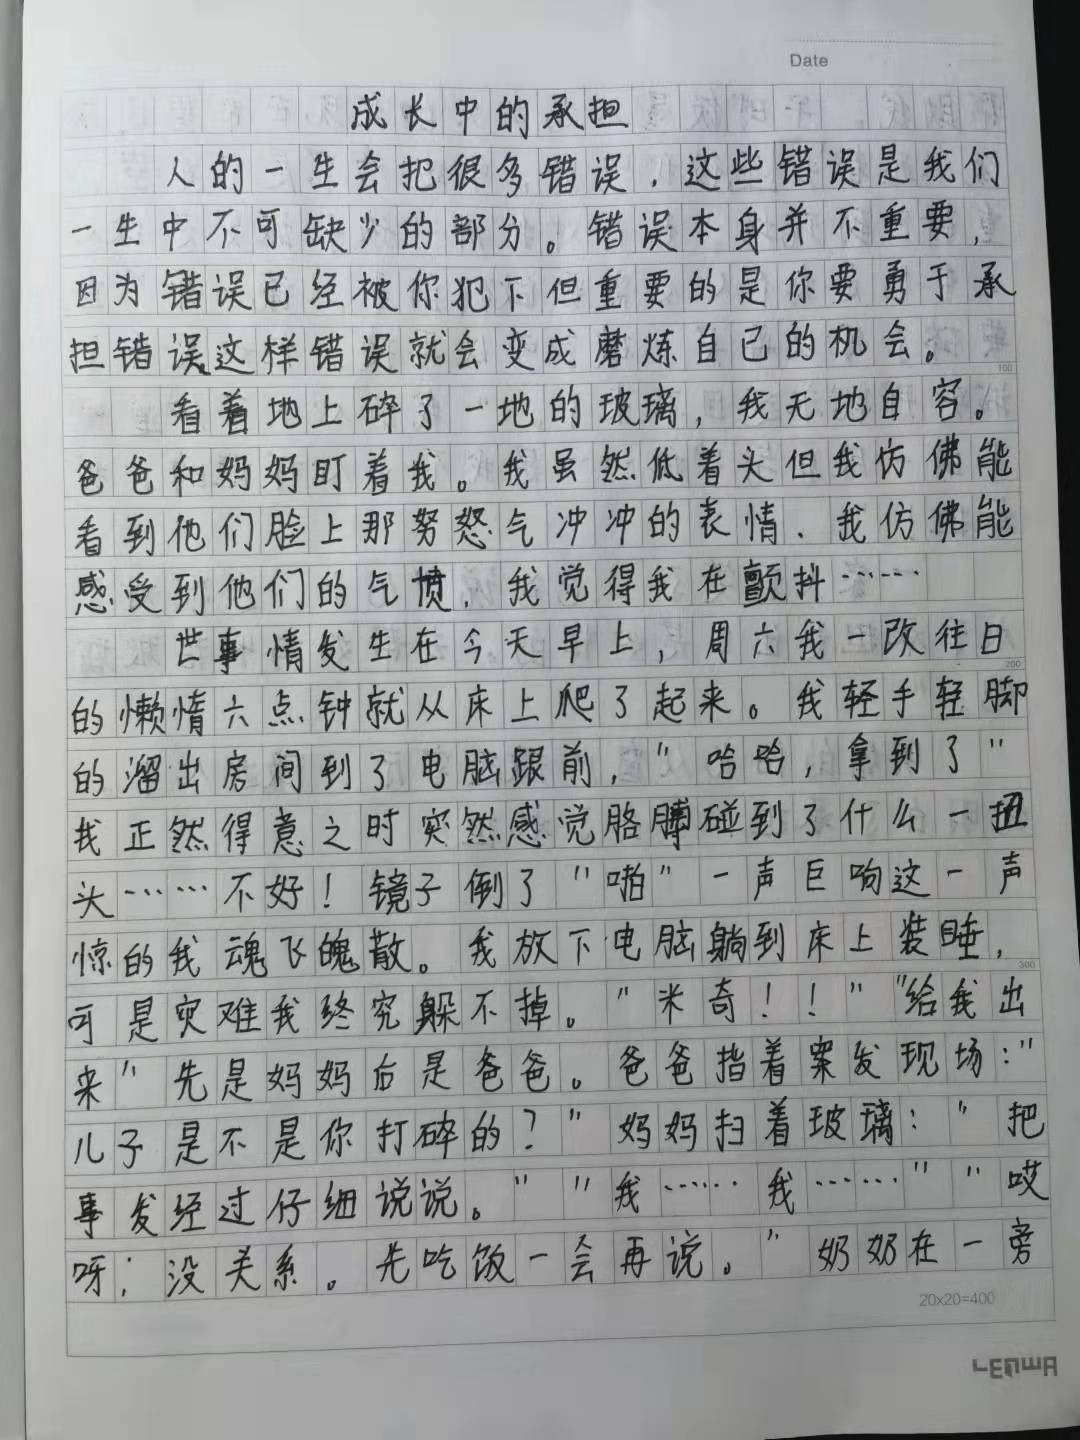 Date
成长中的承担
人的一生会把很多错误，这些错误是我们
一生中不可缺少的部分。错误本身并不重要，
因为错误已经被你犯下但重要的是你要勇于承
担错误,这样错误就会变成磨炼自己的机会。
100
看着地上碎了一地的玻璃，我无地自容。
爸爸和妈妈盯着我。我虽然低着头但我仿佛能
看到他们脸上那努怒气冲冲的表情、我仿佛能
感受到他们的气愤，我觉得我在颤抖……
世事情发生在今天早上，周六我一改往日
200
的懒惰六点钟就从床上爬了起来。我轻手轻脚
的溜出房间到了电脑跟前，“哈哈，拿到了”
我正然得意之时突然感觉胳膊碰到了什么一扭
头……不好！镜子倒了“啪”一声巨响这一声
惊的我魂飞魄散。我放下电脑躺到床上装睡，
300
可是灾难我终究躲不掉。“米奇！！”“给我出
来”先是妈妈后是爸爸。爸爸指着案发现场：“
儿子是不是你打碎的？”妈妈扫着玻璃：“把
事发经过仔细说说。”“我……我……”“哎
呀；没关系。先吃饭一会再说。”奶奶在一旁
20x20=400
LENWA